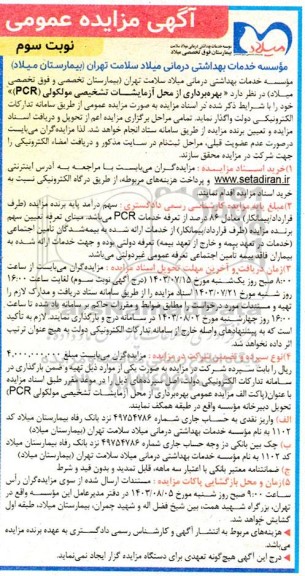 آگهی مزایده عمومی
نوبت سوم
میلاد
موسسه خدمات بهداشتی درمانی میلاد سلامت تهران
بیمارستان فوق تخصصی میلاد
مؤسسه خدمات بهداشتی درمانی میلاد سلامت تهران (بیمارستان میلاد)
مؤسسه خدمات بهداشتی درمانی میلاد سلامت تهران (بیمارستان تخصصی و فوق تخصصی
میلاد) در نظر دارد « بهره‌برداری از محل آزمایشات تشخیص مولکولی (PCR)»
خود را با شرایط ذکر شده در اسناد مزایده به صورت مزایده عمومی از طریق سامانه تدارکات
الکترونیکی دولت واگذار نماید. تمامی مراحل برگزاری مزایده اعم از تحویل و دریافت اسناد
مزایده و تعیین برنده مزایده از طریق سامانه ستاد انجام خواهد شد. لذا مزایده‌گران می‌بایست
درصورت عدم عضویت قبلی، مراحل ثبت‌نام در سایت مذکور و دریافت امضاء الکترونیکی را
جهت شرکت در مزایده محقق سازند.
۱) خرید اسناد مزایده : مزایده‌گران می‌بایست با مراجعه به آدرس اینترنتی
www.setadiran.ir و پرداخت هزینه‌های مربوطه، از طریق درگاه الکترونیکی نسبت به
خرید اسناد مزایده اقدام نمایند.
۲) مبلغ پایه مزایده کارشناسی رسمی دادگستری : سهم درآمد پایه برنده مزایده (طرف
قرارداد/پیمانکار) معادل ۸۶ درصد از تعرفه خدمات PCR می‌باشد. مبنای تعرفه تعیین سهم
برنده مزایده (طرف قرارداد/پیمانکار) از خدمات ارائه شده به بیمه‌شدگان تامین اجتماعی
(خدمات در تعهد بیمه و خارج از تعهد بیمه) تعرفه دولتی بوده و جهت خدمات ارائه شده به
بیماران فاقد بیمه تامین اجتماعی تعرفه عمومی غیردولتی می‌باشد.
۳) زمان دریافت و آخرین مهلت تحویل اسناد مزایده : مزایده‌گران می‌بایست از ساعت
۸:۰۰ صبح روز یکشنبه مورخ ۱۴۰۳/۰۷/۱۵ (درج آگهی نوبت سوم) لغایت ساعت ۱۶:۰۰
روز شنبه مورخ ۱۴۰۳/۰۷/۲۱ اسناد مزایده را از طریق سامانه ستاد دریافت و مدارک لازم را
۱۶:۰۰ روز چهارشنبه مورخ ۱۴۰۳/۰۸/۰۲ در سامانه درج و بارگذاری نمایند. لازم به تأکید
است که به پیشنهادهای واصله خارج از سامانه تدارکات الکترونیکی دولت به هیچ عنوان ترتیب
اثر داده نخواهد شد.
۴) نوع سپرده و تضمین شرکت در مزایده : مزایده‌گران می‌بایست مبلغ ۴.۰۰۰.۰۰۰.۰۰۰
ریال را بابت سپرده شرکت در مزایده به صورت یکی از موارد ذیل تهیه و ضمن بارگذاری در
با عنوان (پاکت الف مزایده عمومی بهره‌برداری از محل آزمایشات تشخیصی مولکولی PCR)
تحویل دبیرخانه مؤسسه واقع در طبقه همکف نمایند.
الف) واریز نقدی به حساب جاری شماره ۴۹۷۵۴۷۸۶ نزد بانک رفاه بیمارستان میلاد کد
۱۱۰۲ به نام مؤسسه خدمات بهداشتی درمانی میلاد سلامت تهران (بیمارستان میلاد)
ب) چک بین بانکی در وجه حساب جاری شماره ۴۹۷۵۴۷۸۶ نزد بانک رفاه بیمارستان میلاد
کد ۱۱۰۲ به نام مؤسسه خدمات بهداشتی درمانی میلاد سلامت تهران (بیمارستان میلاد)
ج) ضمانتنامه معتبر بانکی با اعتبار سه ماهه، قابل تمدید و بدون قید و شرط
۵) زمان و محل بازگشایی پاکات مزایده : مستندات ارسال شده از سوی مزایده‌گران رأس
ساعت ۹:۰۰ صبح روز شنبه مورخ ۱۴۰۳/۰۸/۰۵ در دفتر مدیرعامل این مؤسسه واقع در
تهران، بزرگراه شهید همت، بین شیخ فضل اله و شهید چمران، بیمارستان میلاد، طبقه اول
گشایش خواهد شد.
هزینه‌های مربوط به انتشار آگهی و کارشناس رسمی دادگستری به عهده برنده مزایده
می‌باشد.
درج این آگهی هیچ‌گونه تعهدی برای دستگاه مزایده گزار ایجاد نمی‌نماید.